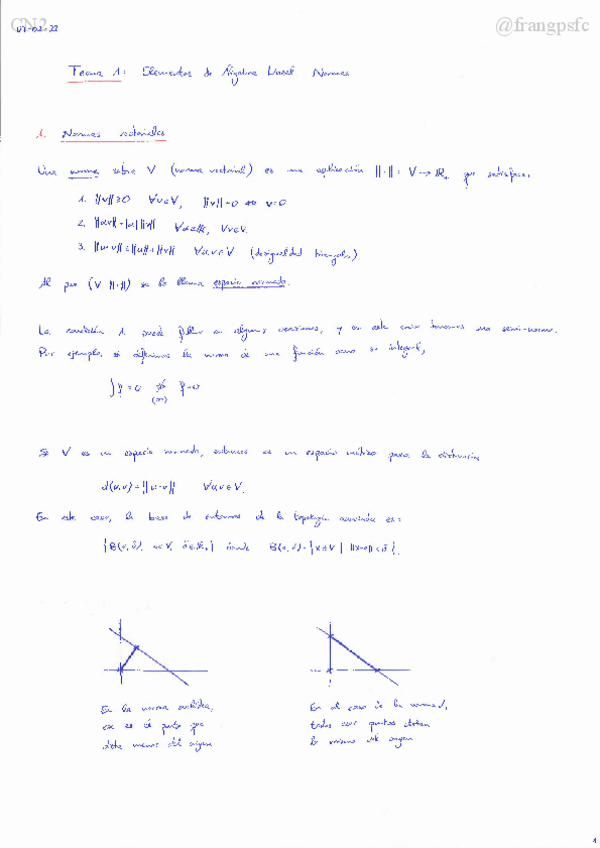 CN2
@frangpsfc
07-02-22
Tema 1: Elementos de Álgebra Lineal Normas
1. Normas vectoriales
Una norma sobre V (norma vectorial) es una aplicación ||·|| : V → ℝ₊ que satisface:
1. ||v|| ≥ 0 ∀v∈V, ||v|| = 0 ⇔ v = 0
2. ||αv|| = |α| ||v|| ∀α∈ℝ, ∀v∈V.
3. ||u+v|| ≤ ||u|| + ||v|| ∀u,v∈V (desigualdad triangular)
Al par (V, ||·||) se le llama espacio normado.
La condición 1. puede fallar en algunas ocasiones, y en este caso tenemos una semi-norma.
Por ejemplo, si definimos la norma de una función como su integral,
∫f = 0 ⇏ f = 0
Si V es un espacio normado, entonces es un espacio métrico para la distancia
d(u,v) = ||u-v|| ∀u,v∈V.
En este caso, la base de entornos de la topología asociada es:
{B(v,δ), v∈V, δ∈ℝ₊} donde B(v,δ) = {x∈V | ||x-v|| < δ}.
En la norma euclídea,
ese es el punto que
dista menos del origen
En el caso de la norma 1,
todos esos puntos distan
lo mismo del origen
1